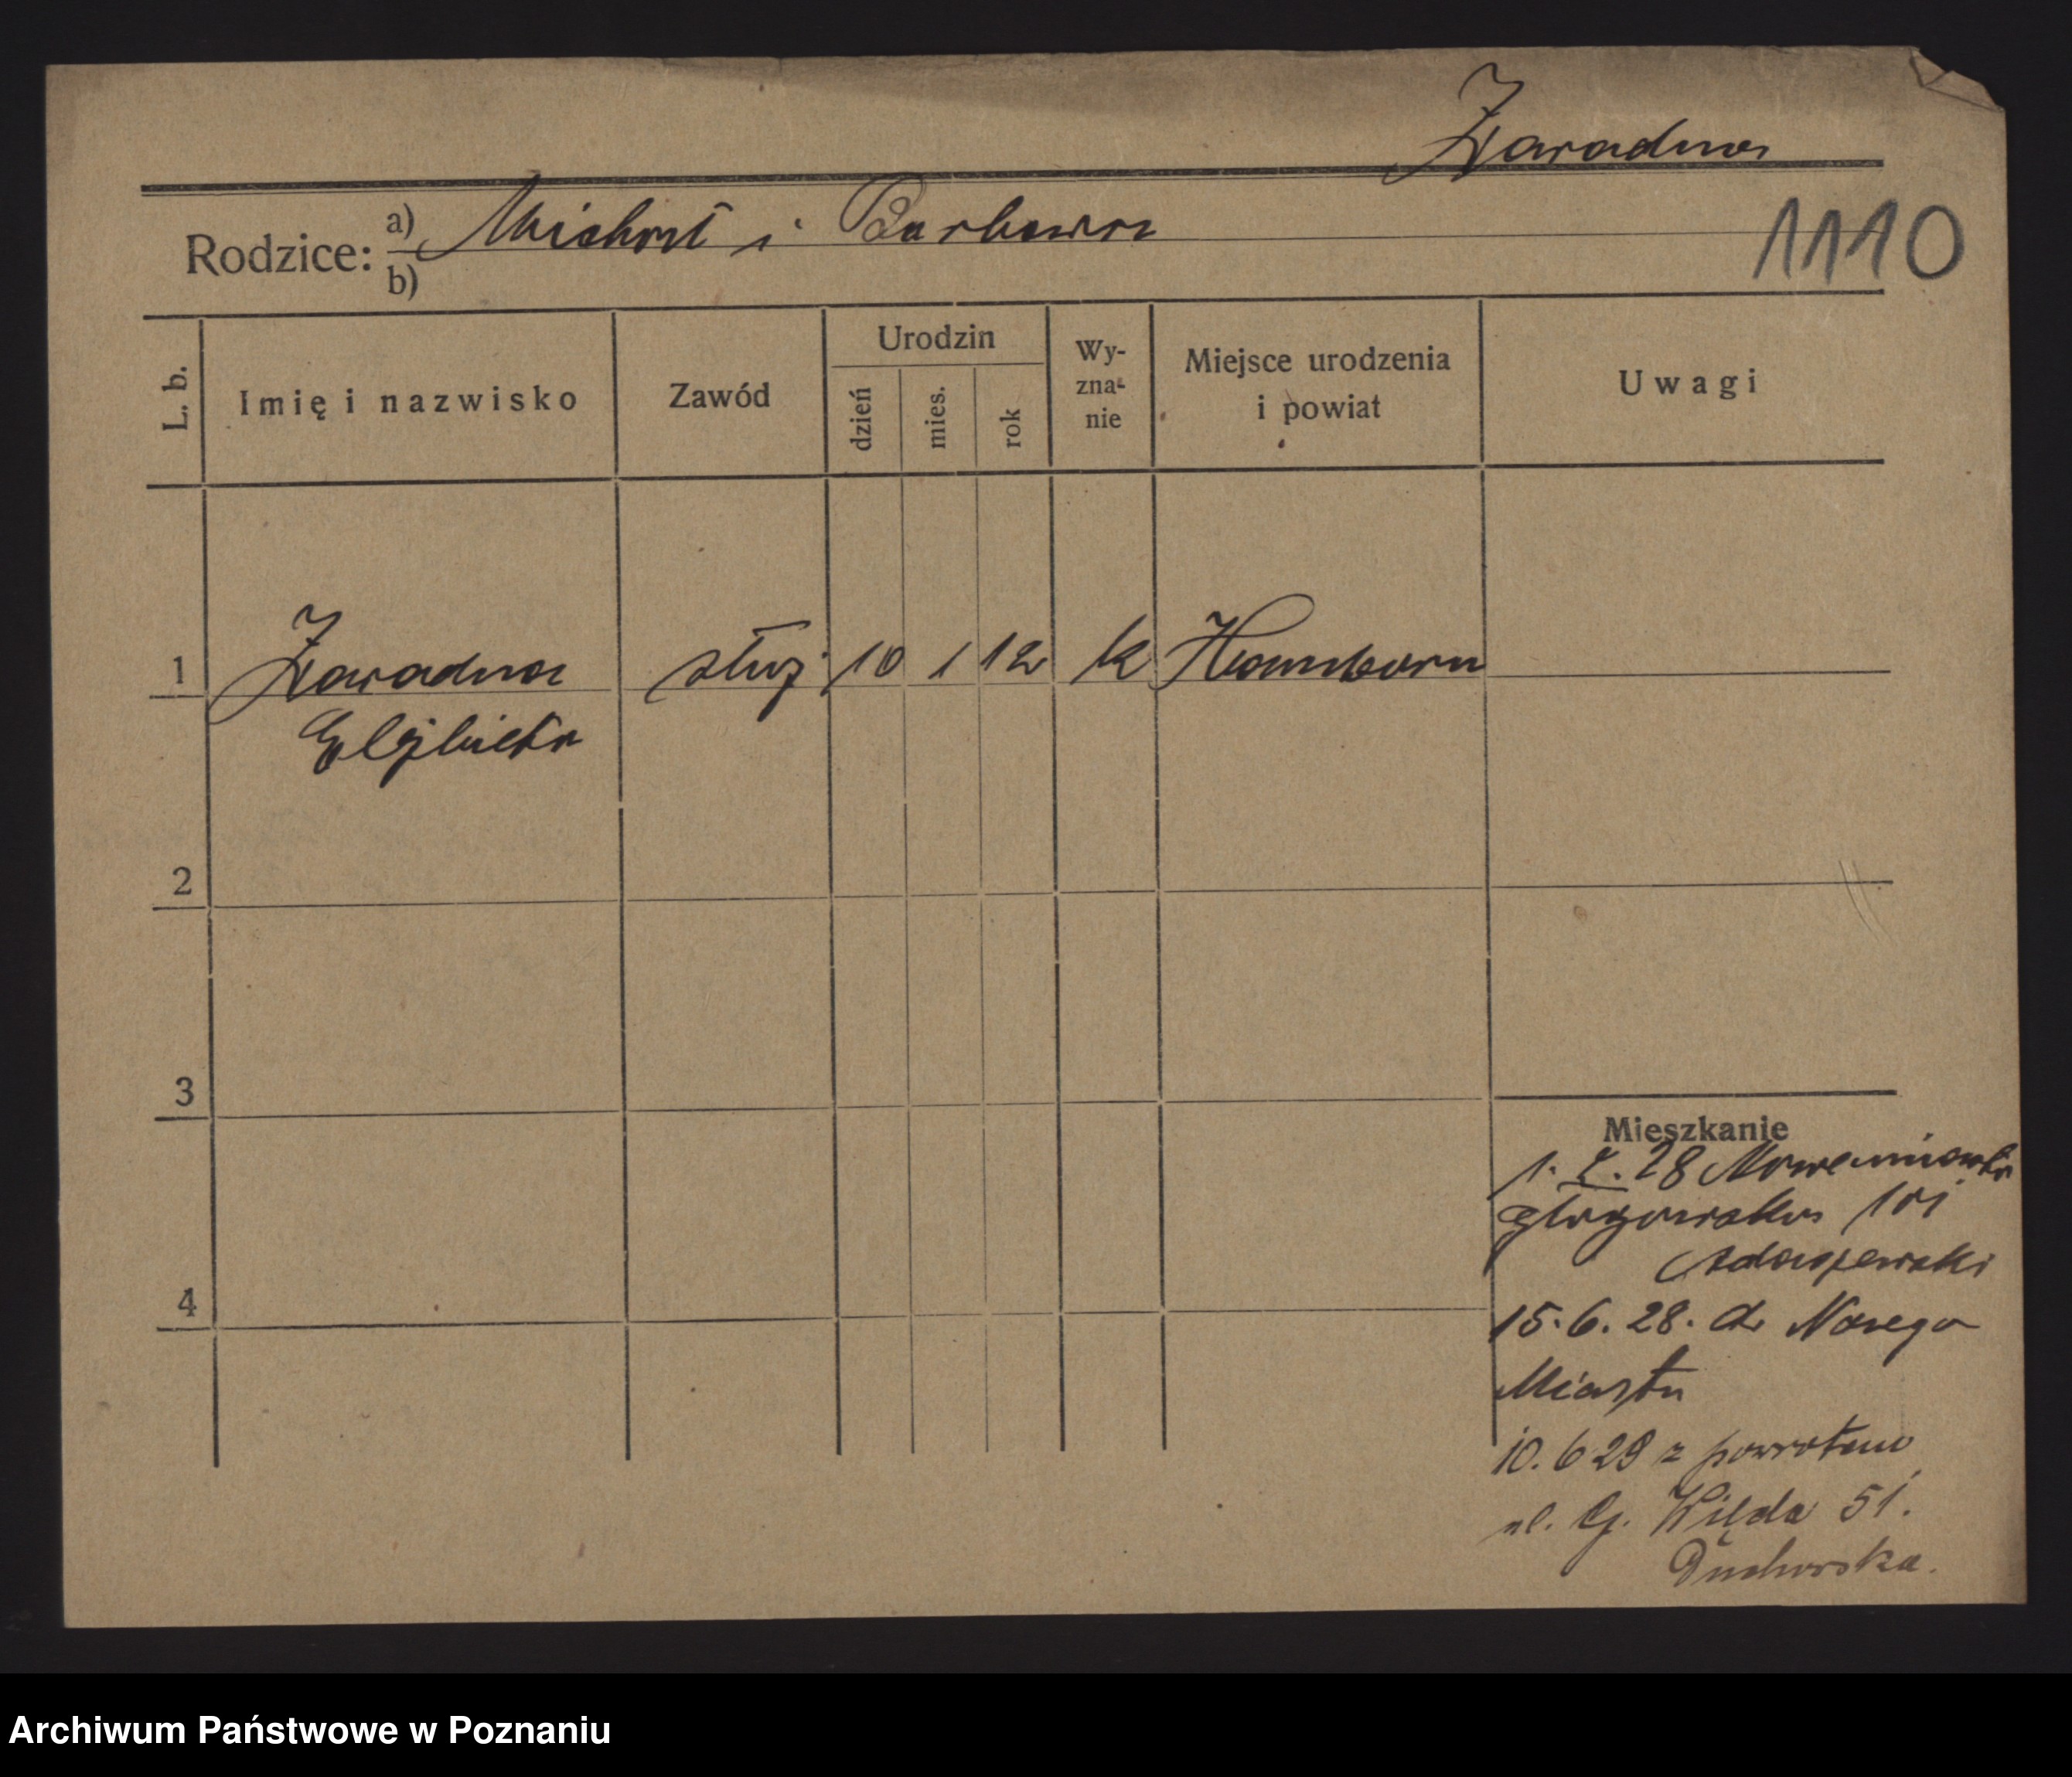 Zaradna
1110
Rodzice: a) Michał i Barbara
b)
L. b.
Imię i nazwisko
Zawód
Urodzin
dzień
mies.
rok
Wy-
zna-
nie
Miejsce urodzenia
i powiat
Uwagi
1 Zaradna służ 10 1 12 k Hamborn
Elżbieta
2
3
4
Mieszkanie
1. 2. 28 Nowemiasto
Głogowska 101
Adaszewski
15. 6. 28. do Nowego
Miasta
10. 6 29 z powrotem
ul. G. Wilda 51.
Duchowska.
Archiwum Państwowe w Poznaniu